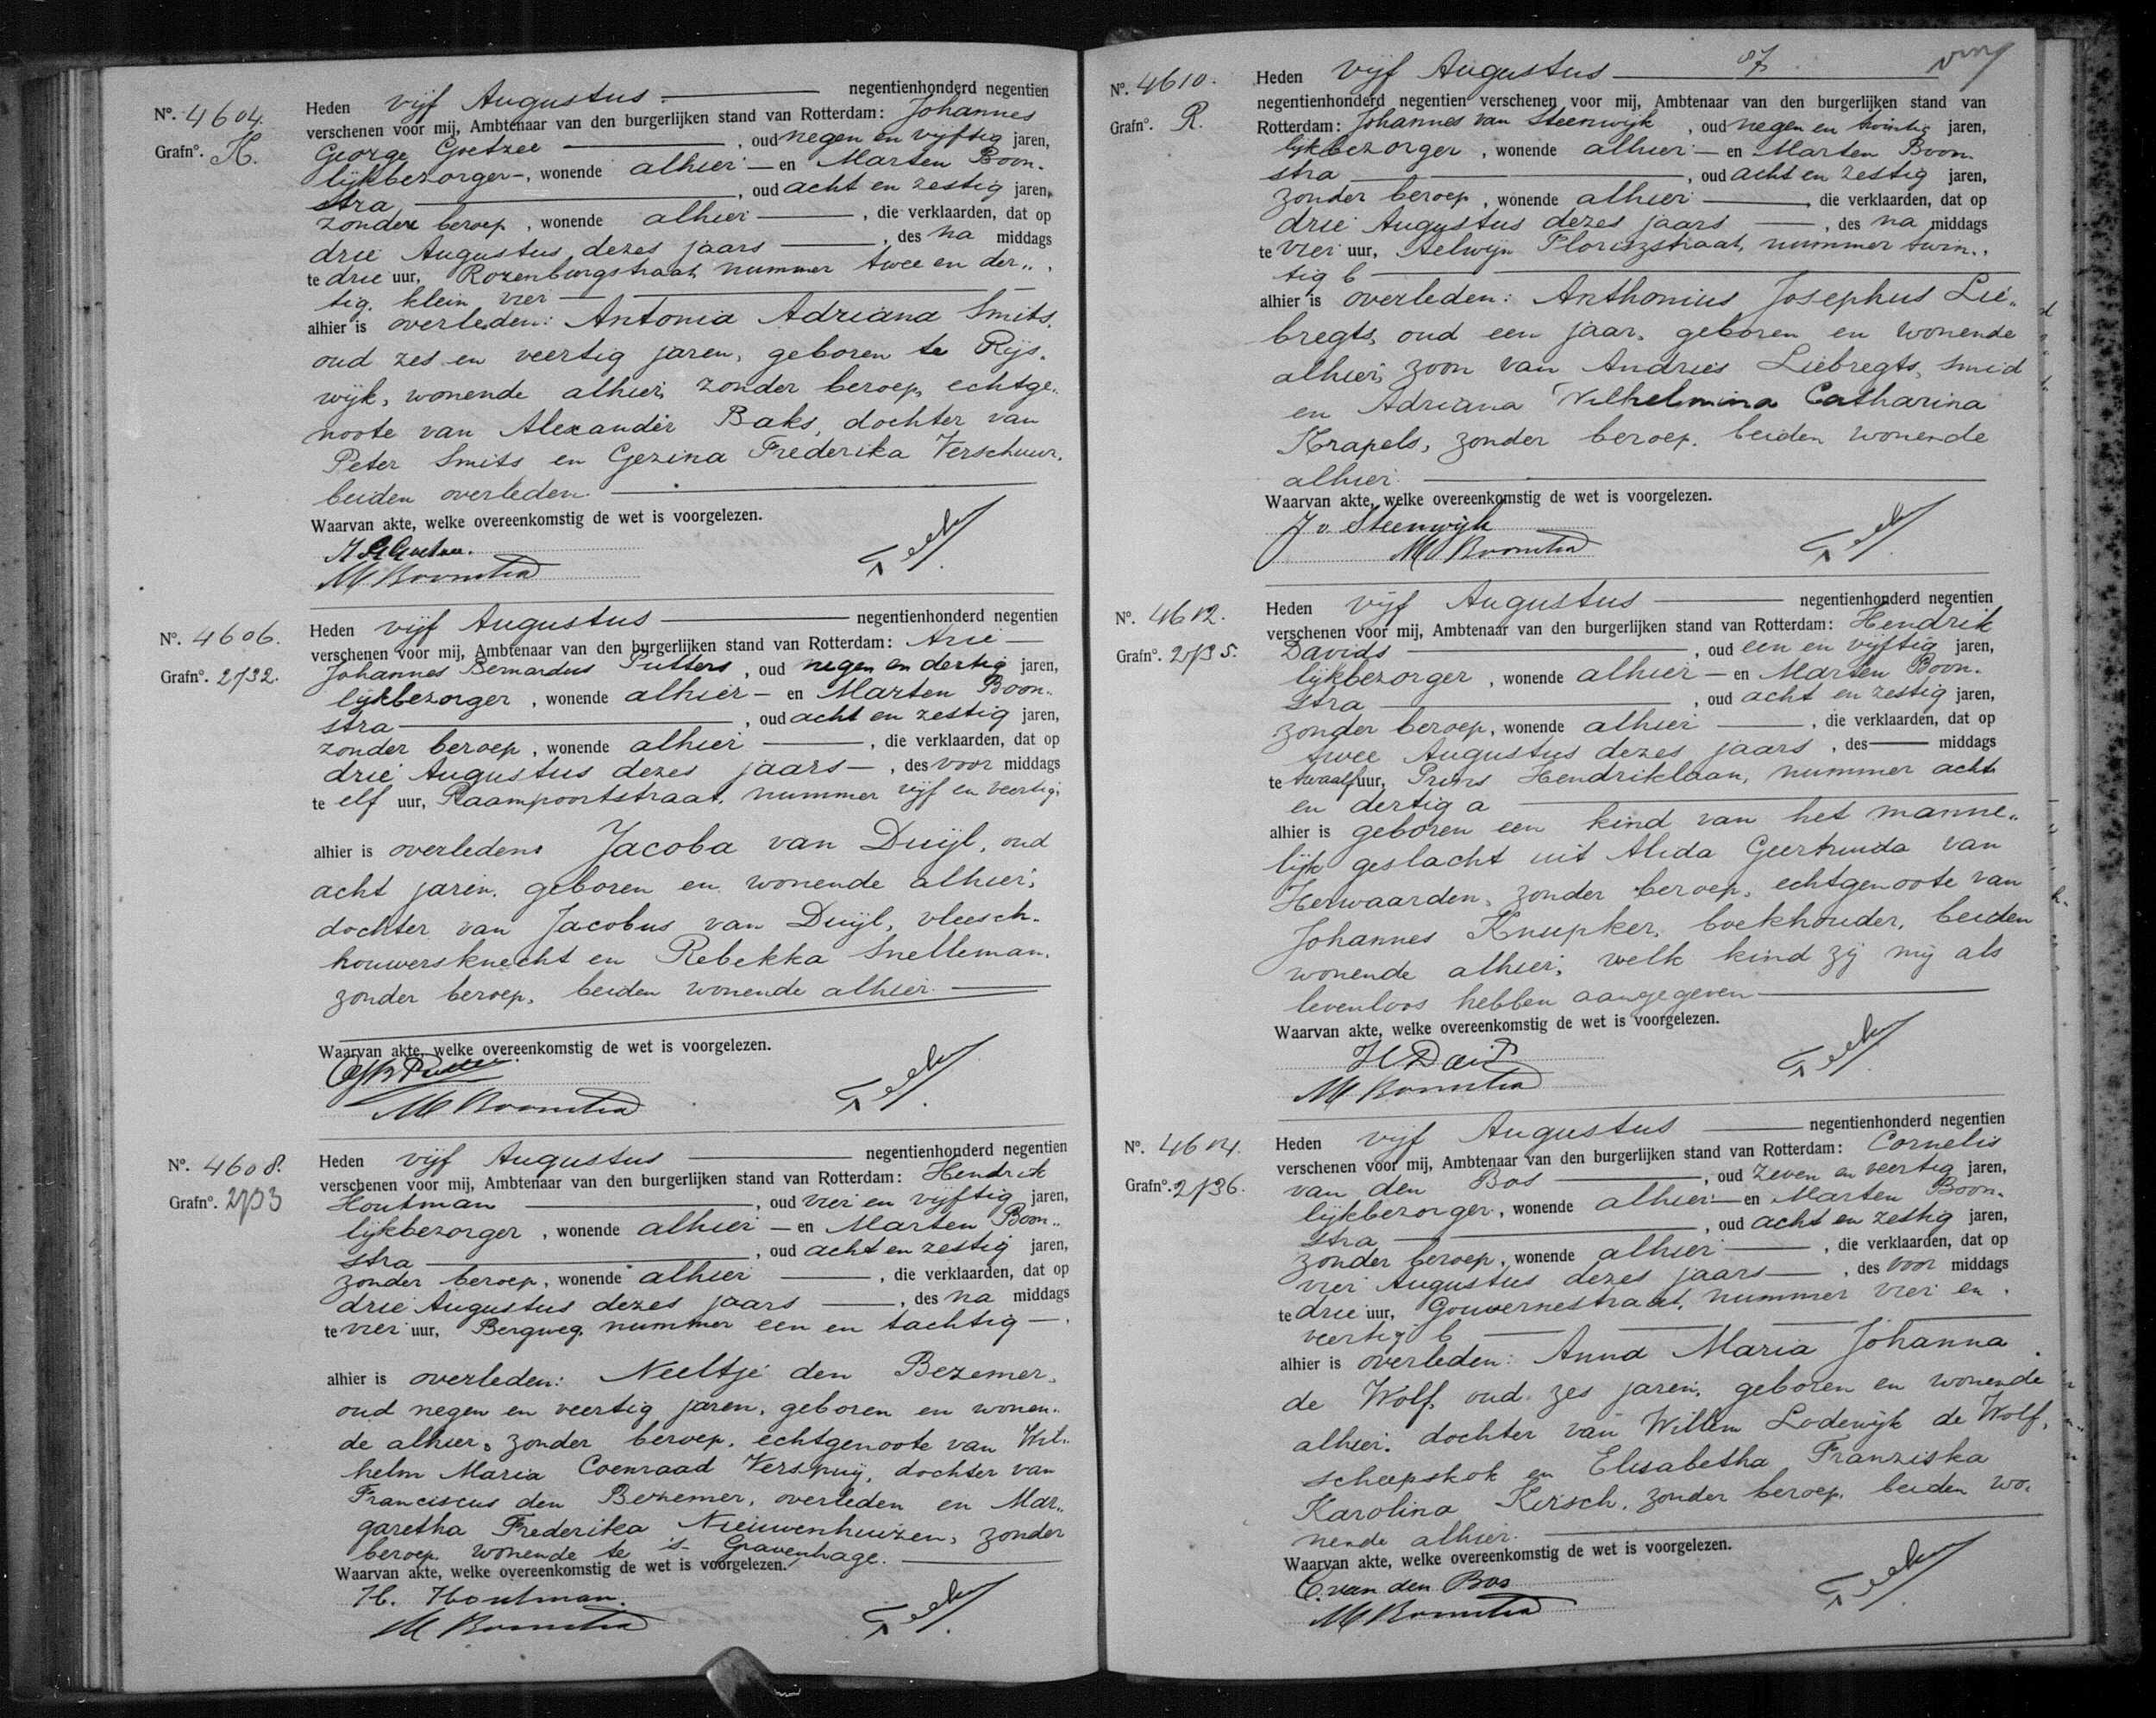 Nº. 4604.
Grafnº. K.
Heden vijf Augustus negentienhonderd negentien
verschenen voor mij, Ambtenaar van den burgerlijken stand van Rotterdam: Johannes
George Goetzee, oud negen en vijftig jaren,
lijkbezorger, wonende alhier en Marten Boon-
stra, oud acht en zestig jaren,
zonder beroep, wonende alhier, die verklaarden, dat op
drie Augustus dezes jaars, des na middags
te drie uur, Rozenburgstraat nummer twee en der„
tig. klein vier
alhier is overleden: Antonia Adriana Smits,
oud zes en veertig jaren, geboren te Rijs-
wijk, wonende alhier, zonder beroep, echtge-
noote van Alexander Baks, dochter van
Peter Smits en Gezina Frederika Verschuur,
beiden overleden.
Waarvan akte, welke overeenkomstig de wet is voorgelezen.
M Boonstra
Nº. 4606.
Grafnº. 2732.
Heden vijf Augustus negentienhonderd negentien
verschenen voor mij, Ambtenaar van den burgerlijken stand van Rotterdam: Arie
Johannes Bernardus Putters, oud negen en dertig jaren,
lijkbezorger, wonende alhier en Marten Boon-
stra, oud acht en zestig jaren,
zonder beroep, wonende alhier, die verklaarden, dat op
drie Augustus dezes jaars, des voor middags
te elf uur, Raampoortstraat, nummer vijf en veertig,
alhier is overleden: Jacoba van Duijl, oud
acht jaren, geboren en wonende alhier,
dochter van Jacobus van Duijl, vleesch-
houwersknecht en Rebekka Snelleman,
zonder beroep, beiden wonende alhier.
Waarvan akte, welke overeenkomstig de wet is voorgelezen.
M Boonstra
Nº. 4608.
Grafnº. 2733
Heden vijf Augustus negentienhonderd negentien
verschenen voor mij, Ambtenaar van den burgerlijken stand van Rotterdam: Hendrik
Houtman, oud vier en vijftig jaren,
lijkbezorger, wonende alhier en Marten Boon„
stra, oud acht en zestig jaren,
zonder beroep, wonende alhier, die verklaarden, dat op
drie Augustus dezes jaars, des na middags
te vier uur, Bergweg, nummer een en tachtig
alhier is overleden: Neeltje den Bezemer,
oud negen en veertig jaren, geboren en wonen-
de alhier, zonder beroep, echtgenoote van Wil-
helm Maria Coenraad Verspuij, dochter van
Franciscus den Bezemer, overleden en Mar„
garetha Frederika Nieuwenhuizen, zonder
beroep, wonende te 's Gravenhage.
Waarvan akte, welke overeenkomstig de wet is voorgelezen.
H. Houtman.
M Boonstra
87
Nº. 4610.
Grafnº. R.
Heden vijf Augustus
negentienhonderd negentien verschenen voor mij, Ambtenaar van den burgerlijken stand van
Rotterdam: Johannes van Steenwijk, oud negen en twintig jaren,
lijkbezorger, wonende alhier en Marten Boon-
stra, oud acht en zestig jaren,
zonder beroep, wonende alhier, die verklaarden, dat op
drie Augustus dezes jaars, des na middags
te vier uur, Aelwijn Floriszstraat, nummer twin„
tig b
alhier is overleden: Anthonius Josephus Lie„
bregts, oud een jaar, geboren en wonende
alhier, zoon van Andries Liebregts, smid
en Adriana Wilhelmina Catharina
Krapels, zonder beroep, beiden wonende
alhier.
Waarvan akte, welke overeenkomstig de wet is voorgelezen.
J v. Steenwijk
M Boonstra
Nº. 4612.
Grafnº. 2735.
Heden vijf Augustus negentienhonderd negentien
verschenen voor mij, Ambtenaar van den burgerlijken stand van Rotterdam: Hendrik
Davids, oud een en vijftig jaren,
lijkbezorger, wonende alhier en Marten Boon-
stra, oud acht en zestig jaren,
zonder beroep, wonende alhier, die verklaarden, dat op
twee Augustus dezes jaars, des middags
te twaalf uur, Prins Hendriklaan, nummer acht
en dertig a
alhier is geboren een kind van het manne„
lijk geslacht uit Alida Geertruida van
Herwaarden, zonder beroep, echtgenoote van
Johannes Knupker, boekhouder, beiden
wonende alhier, welk kind zij mij als
levenloos hebben aangegeven
Waarvan akte, welke overeenkomstig de wet is voorgelezen.
H Davids
M Boonstra
Nº. 4614.
Grafnº. 2736.
Heden vijf Augustus negentienhonderd negentien
verschenen voor mij, Ambtenaar van den burgerlijken stand van Rotterdam: Cornelis
van den Bos, oud zeven en veertig jaren,
lijkbezorger, wonende alhier en Marten Boon-
stra, oud acht en zestig jaren,
zonder beroep, wonende alhier, die verklaarden, dat op
vier Augustus dezes jaars, des voor middags
te drie uur, Gouvernestraat, nummer vier en
veertig b
alhier is overleden: Anna Maria Johanna
de Wolf, oud zes jaren, geboren en wonende
alhier, dochter van Willem Lodewijk de Wolf,
scheepskok en Elisabetha Franziska
Karolina Kirsch, zonder beroep, beiden wo-
nende alhier.
Waarvan akte, welke overeenkomstig de wet is voorgelezen.
C. van den Bos
M Boonstra